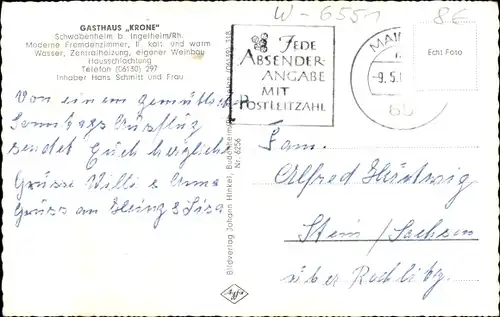 W-6551
8€
GASTHAUS „KRONE"
Schwabenheim b. Ingelheim/Rh.
Moderne Fremdenzimmer, fl. kalt. und warm
Wasser, Zentralheizung, eigener Weinbau
Hausschlachtung
Telefon (06130) 297
Inhaber Hans Schmitt und Frau
JEDE
ABSENDER-
ANGABE
MIT
POSTLEITZAHL
MAIN
-9.5.
65
Echt Foto
Von einem gemütlichen
Sonntags Ausflug
sendet Euch herzliche
Grüsse Willi & Anna
Gruss an Heinz & Lisa
Bildverlag Johann Hinkel, Budenheim
Nr. 6256
Fam.
Alfred Härtwig
Stein/Sachsen
über Rochlitz.
agfa